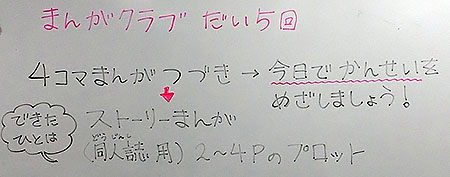 まんがクラブ だい5回
4コママんがつづき → 今日でかんせいを
めざしましょう!
できた
ひとは
ストーリーまんが
どうじんし
(同人誌用) 2~4Pのプロット